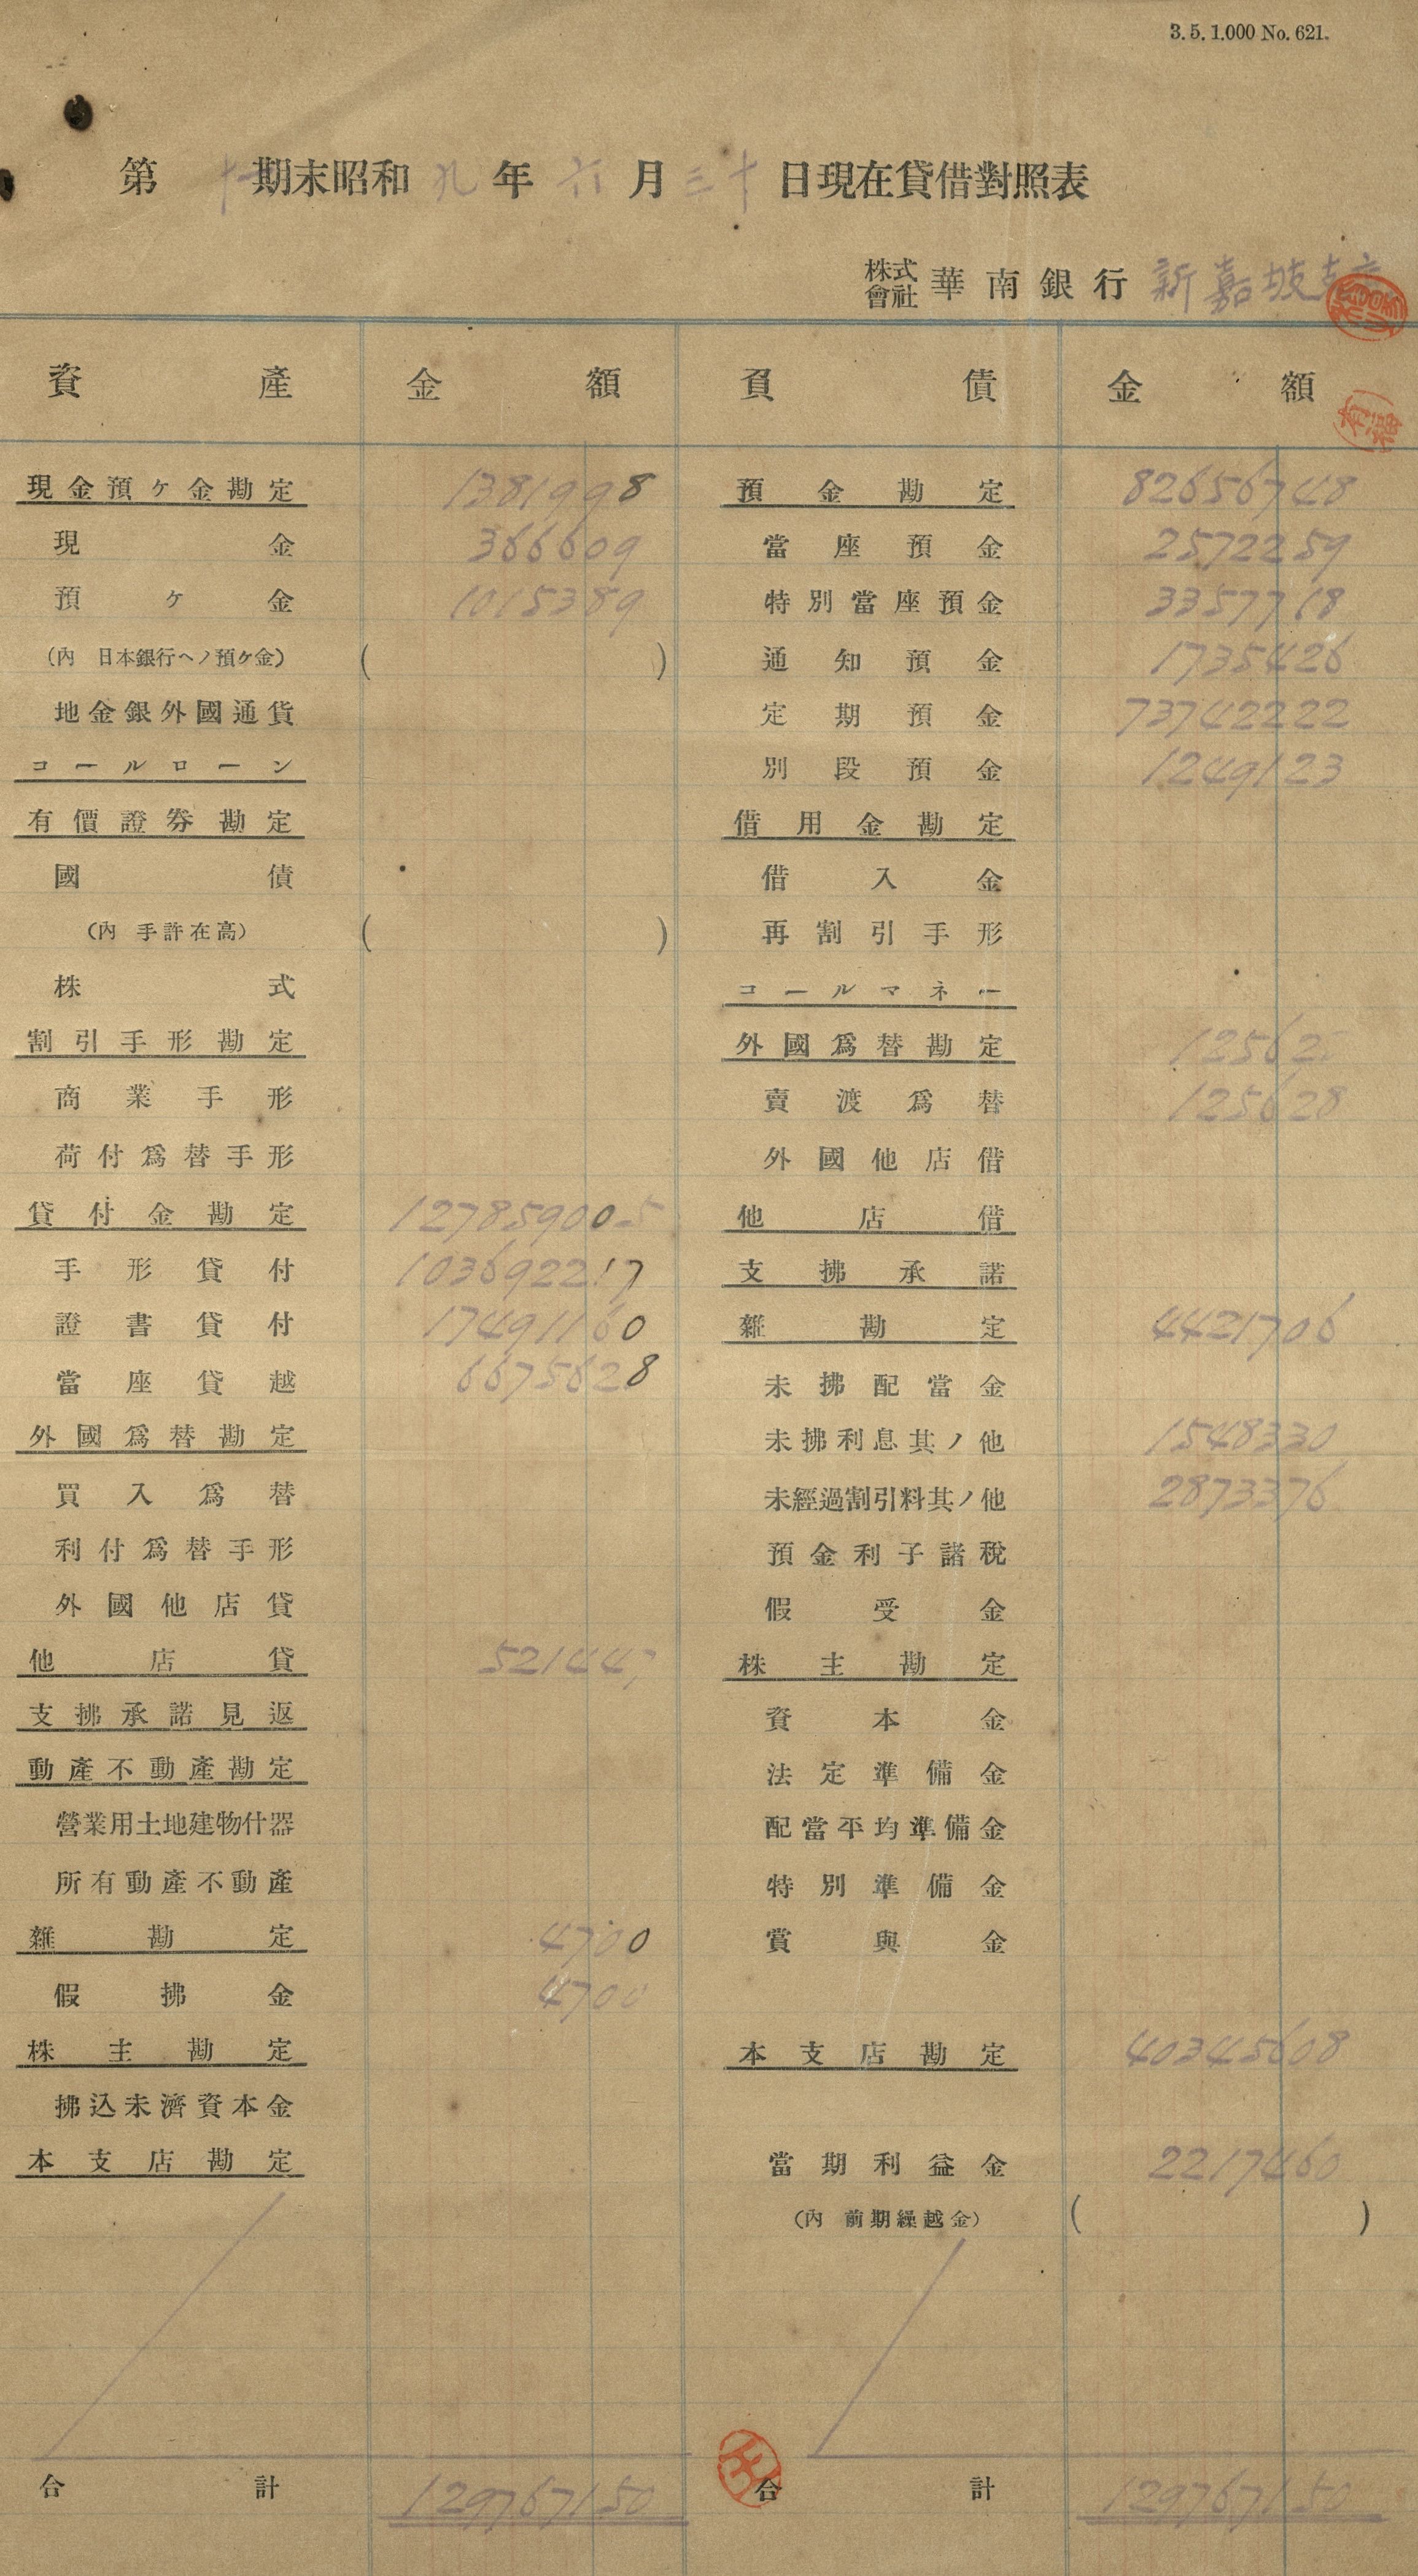 3.5.1.000 No. 621.
第十一期末昭和九年六月三十日現在貸借對照表
株式會社 華南銀行 新嘉坡支店
資產 金額 負債 金額
現金預ケ金勘定 1381998 預金勘定 82656748
現金 366609 當座預金 2572259
預ケ金 1015389 特別當座預金 3357718
(內 日本銀行ヘノ預ケ金) ( ) 通知預金 1735426
地金銀外國通貨 定期預金 73742222
コールローン 別段預金 1249123
有價證券勘定 借用金勘定
國債 借入金
(內 手許在高) ( ) 再割引手形
株式 コールマネー
割引手形勘定 外國爲替勘定 125628
商業手形 賣渡爲替 125628
荷付爲替手形 外國他店借
貸付金勘定 127859005 他店借
手形貸付 103692217 支拂承諾
證書貸付 17491160 雜勘定 4421706
當座貸越 6675628 未拂配當金
外國爲替勘定 未拂利息其ノ他 1548330
買入爲替 未經過割引料其ノ他 2873376
利付爲替手形 預金利子諸稅
外國他店貸 假受金
他店貸 521447 株主勘定
支拂承諾見返 資本金
動產不動產勘定 法定準備金
營業用土地建物什器 配當平均準備金
所有動產不動產 特別準備金
雜勘定 4700 賞與金
假拂金 4700
株主勘定 本支店勘定 40345608
拂込未濟資本金
本支店勘定 當期利益金 2217460
(內 前期繰越金) ( )
合計 129767150 合計 129767150